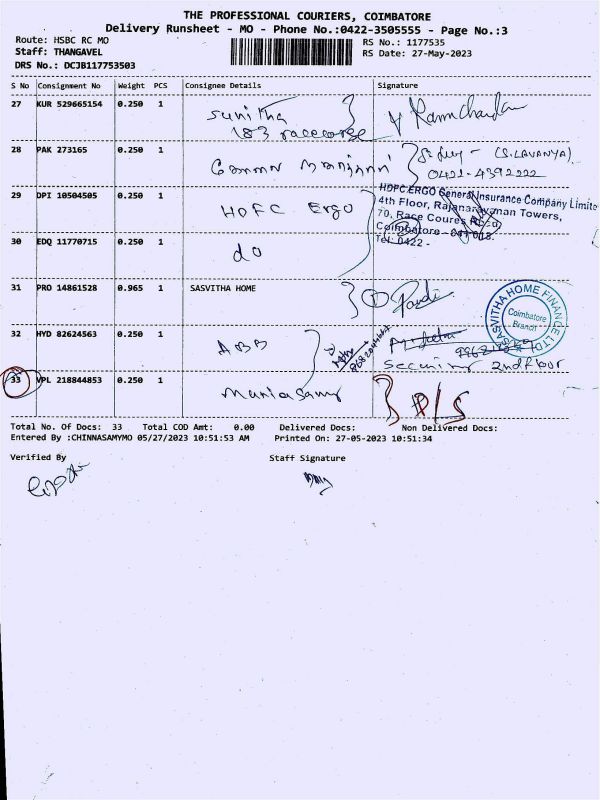 THE PROFESSIONAL COURIERS, COIMBATORE
Delivery Runsheet - MO - Phone No.:0422-3505555 - Page No.:3
Route: HSBC RC MO
Staff: THANGAVEL
DRS No.: DCJB117753503
RS No.: 1177535
RS Date: 27-May-2023
S No Consignment No Weight PCS Consignee Details Signature
27 KUR 529665154 0.250 1 Sunitha
183 racecorse
Ramchandan
28 PAK 273165 0.250 1
(S.LAVANYA)
0421-4392222
29 DPI 10504505 0.250 1 HDFC Ergo
HDFC ERGO General Insurance Company Limite
4th Floor, Rajanarayanan Towers,
70, Race Course Road,
Coimbatore - 641 018.
Tel: 0422 -
30 EDQ 11770715 0.250 1 do
31 PRO 14861528 0.965 1 SASVITHA HOME
SASVITHA HOME FINANCE LTD
Coimbatore
Branch
32 HYD 82624563 0.250 1 ABB
Security 2nd floor
33 VPL 218844853 0.250 1 Maniasamy
D/S
Total No. Of Docs: 33 Total COD Amt: 0.00 Delivered Docs: Non Delivered Docs:
Entered By :CHINNASAMYMO 05/27/2023 10:51:53 AM Printed On: 27-05-2023 10:51:34
Verified By Staff Signature